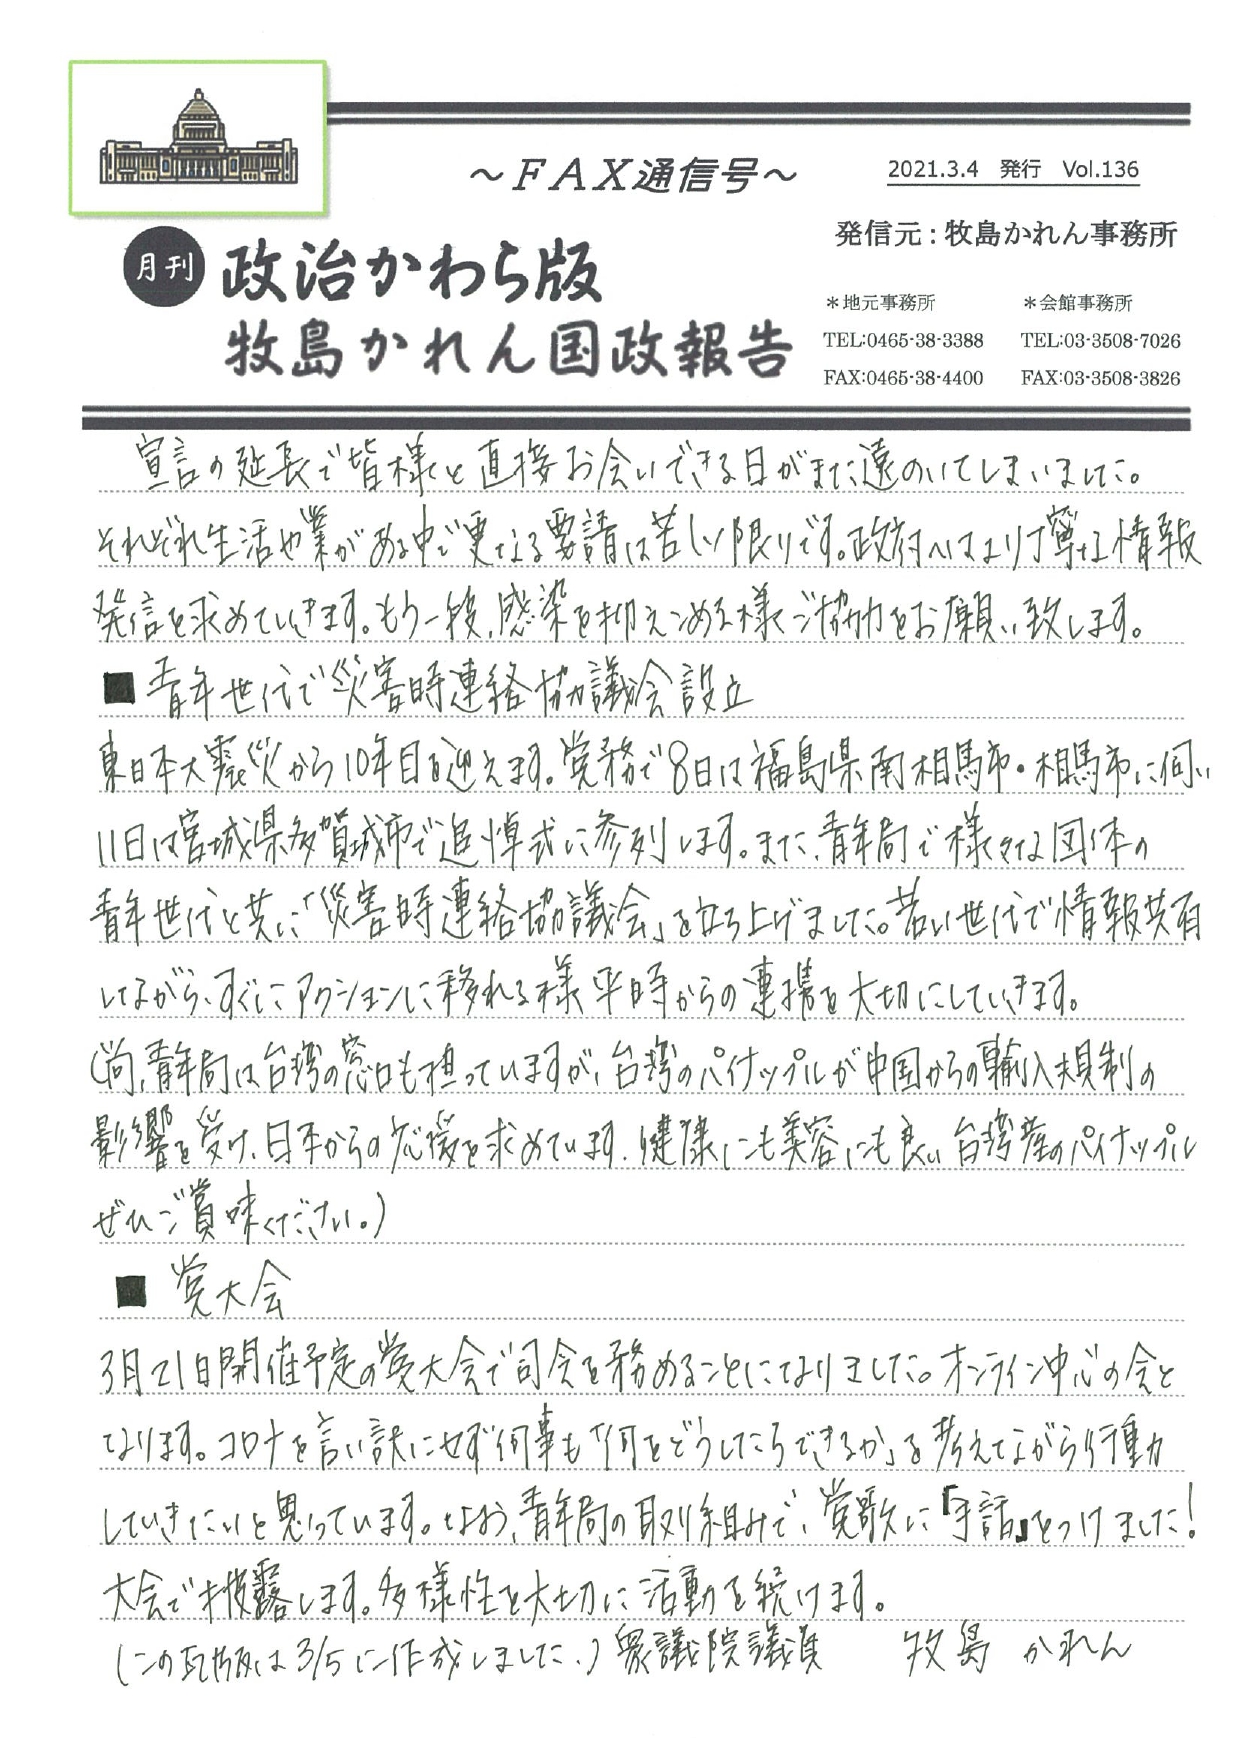 ～FAX通信号～
2021.3.4 発行 Vol.136
発信元：牧島かれん事務所
月刊 政治かわら版
牧島かれん国政報告
＊地元事務所 ＊会館事務所
TEL:0465-38-3388 TEL:03-3508-7026
FAX:0465-38-4400 FAX:03-3508-3826
宣言の延長で皆様と直接お会いできる日がまた遠のいてしまいました。
それぞれ生活や業がある中で更なる要請は苦しい限りです。政府へはより丁寧な情報
発信を求めていきます。もう一段、感染を抑えこめる様ご協力をお願い致します。
■ 青年世代で災害時連絡協議会設立
東日本大震災から10年目を迎えます。党務で8日は福島県南相馬市・相馬市に伺い
11日は宮城県多賀城市で追悼式に参列します。また、青年局で様々な団体の
青年世代と共に「災害時連絡協議会」を立ち上げました。若い世代で情報共有
しながら、すぐにアクションに移れる様平時からの連携を大切にしていきます。
(尚、青年局は台湾の窓口も担っていますが、台湾のパイナップルが中国からの輸入規制の
影響を受け、日本からの応援を求めています。健康にも美容にも良い台湾産のパイナップル
ぜひご賞味ください。)
■ 党大会
3月21日開催予定の党大会で司会を務めることになりました。オンライン中心の会と
なります。コロナを言い訳にせず何事も「何をどうしたらできるか」を考えながら行動
していきたいと思っています。なお、青年局の取り組みで、党歌に『手話』をつけました!
大会で披露します。多様性を大切に活動を続けます。
(この瓦版は3/5に作成しました。) 衆議院議員 牧島 かれん